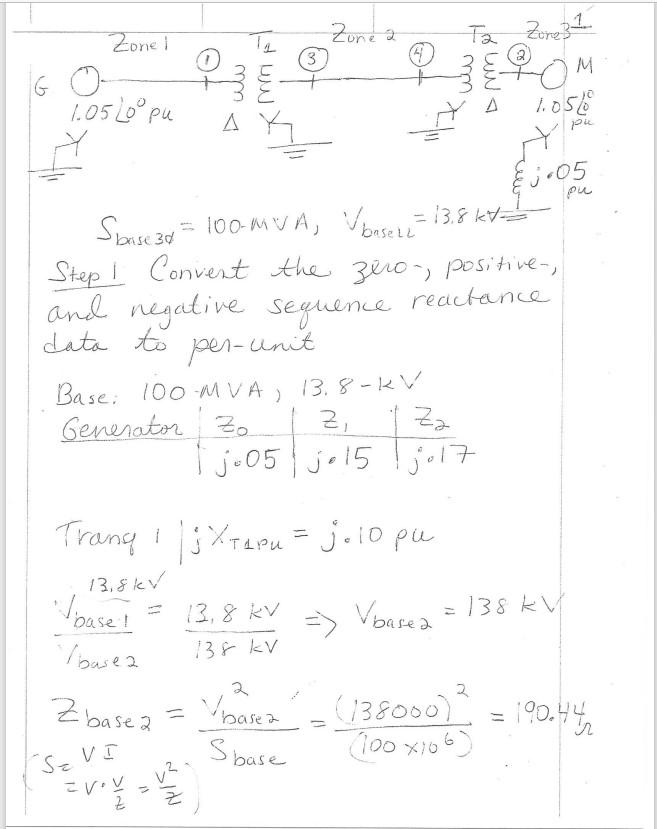 1
Zone 1 T1 Zone 2 T2 Zone 3
1 3 4 2
G M
1.05∠0° pu Δ Δ 1.05∠0° pu
j.05 pu
Sbase3φ = 100-MVA, VbaseLL = 13.8 kV
Step 1 Convert the zero-, positive-,
and negative sequence reactance
data to per-unit
Base: 100-MVA, 13.8-kV
Generator Z0 Z1 Z2
j.05 j.15 j.17
Tranq 1 jXT1PU = j.10 pu
13.8kV
Vbase1 / Vbase2 = 13.8 kV / 138 kV => Vbase2 = 138 kV
Zbase2 = Vbase2² / Sbase = (138000)² / (100 x10⁶) = 190.44 Ω
(S = VI
= V·V/Z = V²/Z)